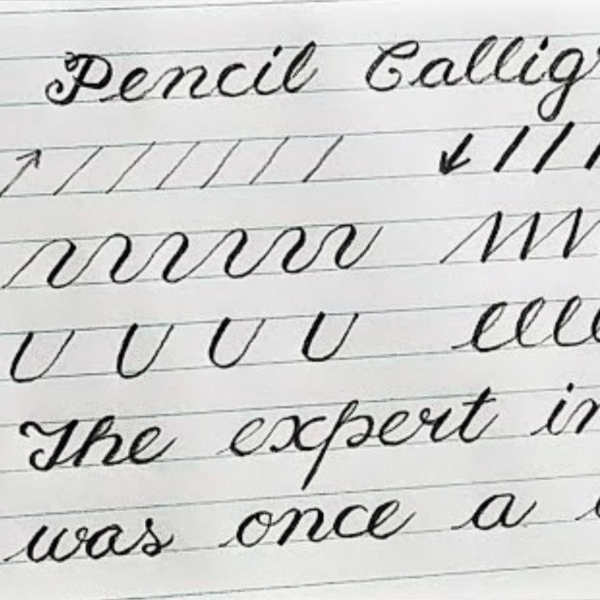 Pencil Callig
The expert in
was once a